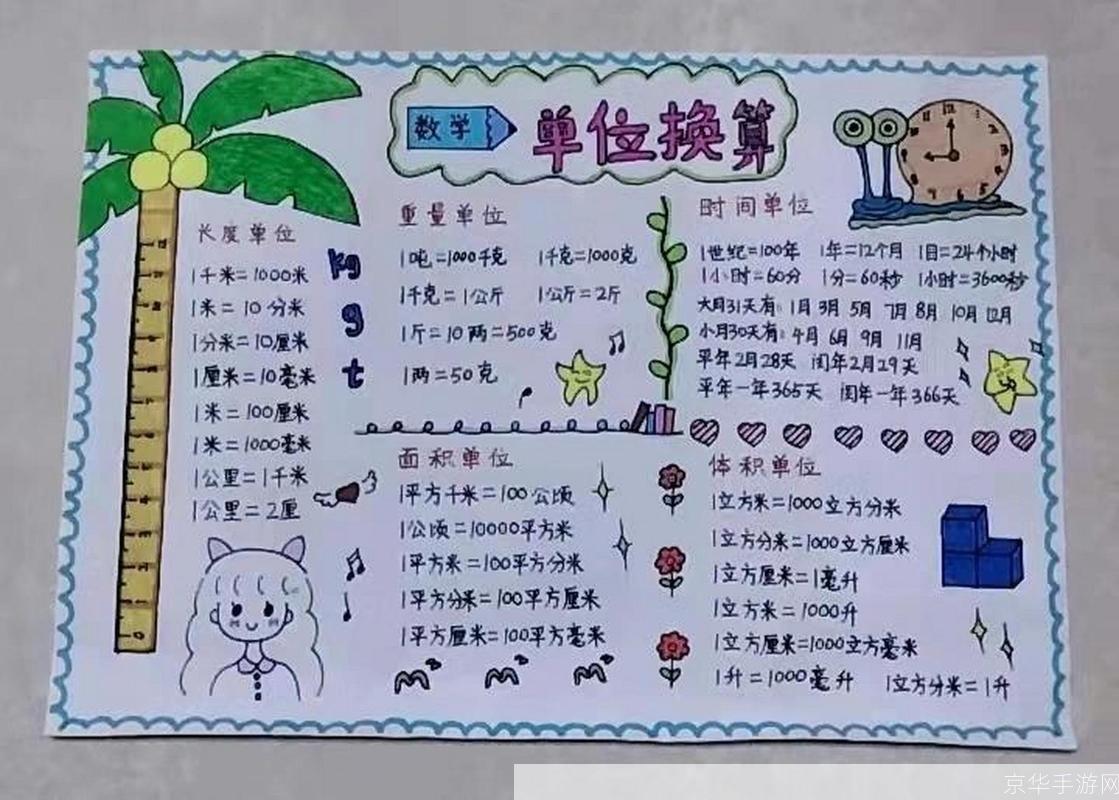 数学 单位换算
长度单位
1千米=1000米
1米=10分米
1分米=10厘米
1厘米=10毫米
1米=100厘米
1米=1000毫米
1公里=1千米
1公里=2厘
kg
g
t
重量单位
1吨=1000千克 1千克=1000克
1千克=1公斤 1公斤=2斤
1斤=10两=500克
1两=50克
时间单位
1世纪=100年 1年=12个月 1日=24个小时
1小时=60分 1分=60秒 1小时=3600秒
大月31天有:1月 3月 5月 7月 8月 10月 12月
小月30天有:4月 6月 9月 11月
平年2月28天 闰年2月29天
平年一年365天 闰年一年366天
面积单位
1平方千米=100公顷
1公顷=10000平方米
1平方米=100平方分米
1平方分米=100平方厘米
1平方厘米=100平方毫米
体积单位
1立方米=1000立方分米
1立方分米=1000立方厘米
1立方厘米=1毫升
1立方米=1000升
1立方厘米=1000立方毫米
1升=1000毫升 1立方分米=1升
京华手游网